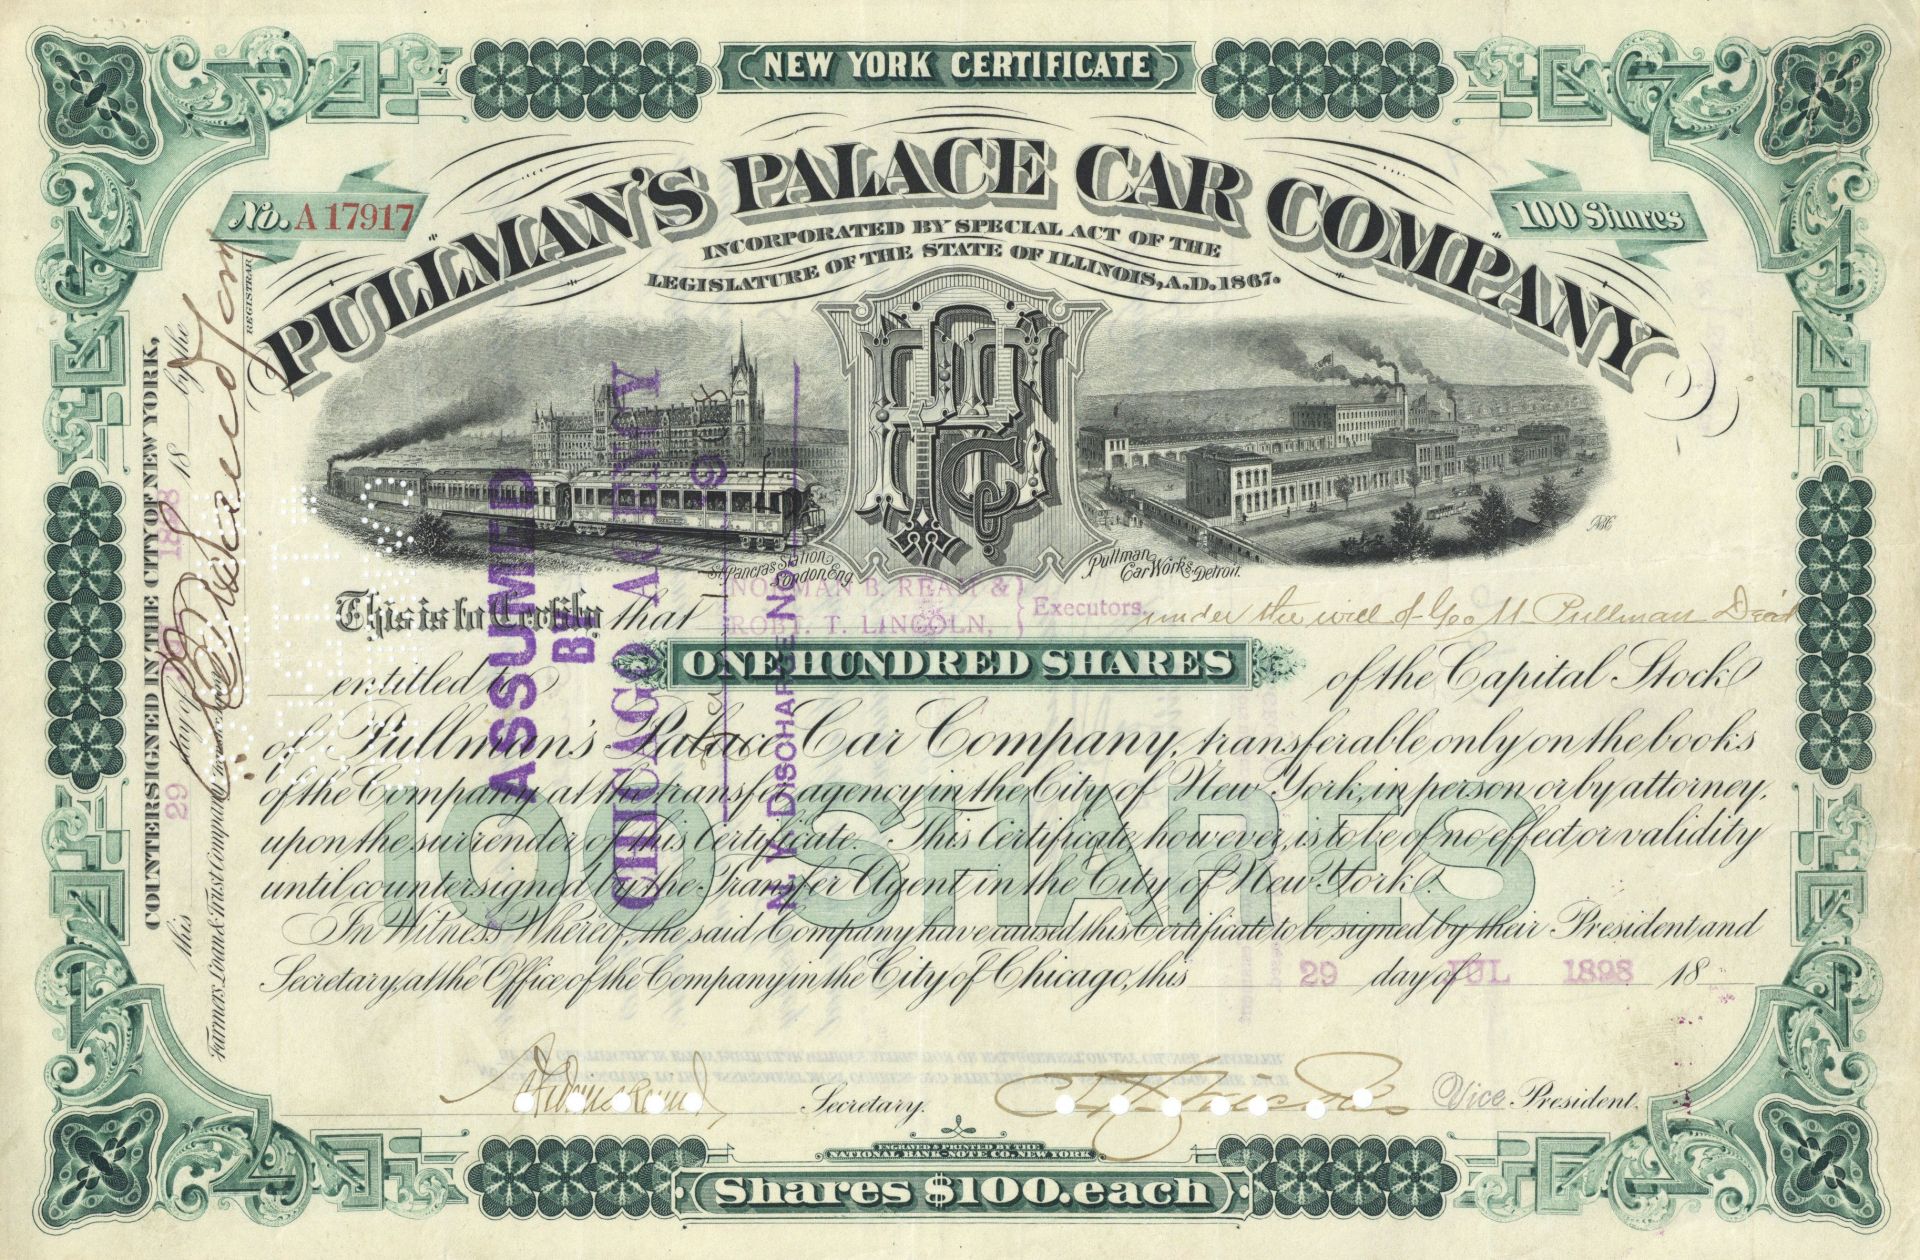 NEW YORK CERTIFICATE
No. A 17917
100 Shares
PULLMAN'S PALACE CAR COMPANY
INCORPORATED BY SPECIAL ACT OF THE
LEGISLATURE OF THE STATE OF ILLINOIS, A.D. 1867.
St. Pancras Station
London, Eng.
Pullman
Car Works, Detroit.
This is to Certify that NORMAN B. REAM & ROBT. T. LINCOLN, Executors. under the will of Geo M Pullman Dec'd
entitled to ONE HUNDRED SHARES of the Capital Stock
of Pullman's Palace Car Company, transferable only on the books
of the Company at the transfer agency in the City of New York, in person or by attorney,
upon the surrender of this Certificate. This Certificate, however, is to be of no effect or validity
until countersigned by the Transfer Agent in the City of New York.
100 SHARES
In Witness Whereof, the said Company have caused this Certificate to be signed by their President and
Secretary, at the Office of the Company in the City of Chicago, this 29 day of JUL 1898 18
Secretary.
Vice President.
ENGRAVED & PRINTED BY THE
NATIONAL BANK-NOTE CO. NEW YORK
Shares $100. each
COUNTERSIGNED IN THE CITY OF NEW YORK,
this 29 day of 1898 18 by the
Farmers, Loan & Trust Company
REGISTRAR
ASSUMED
BY
CHICAGO AGENCY
N. Y. DISCHARGE NO.